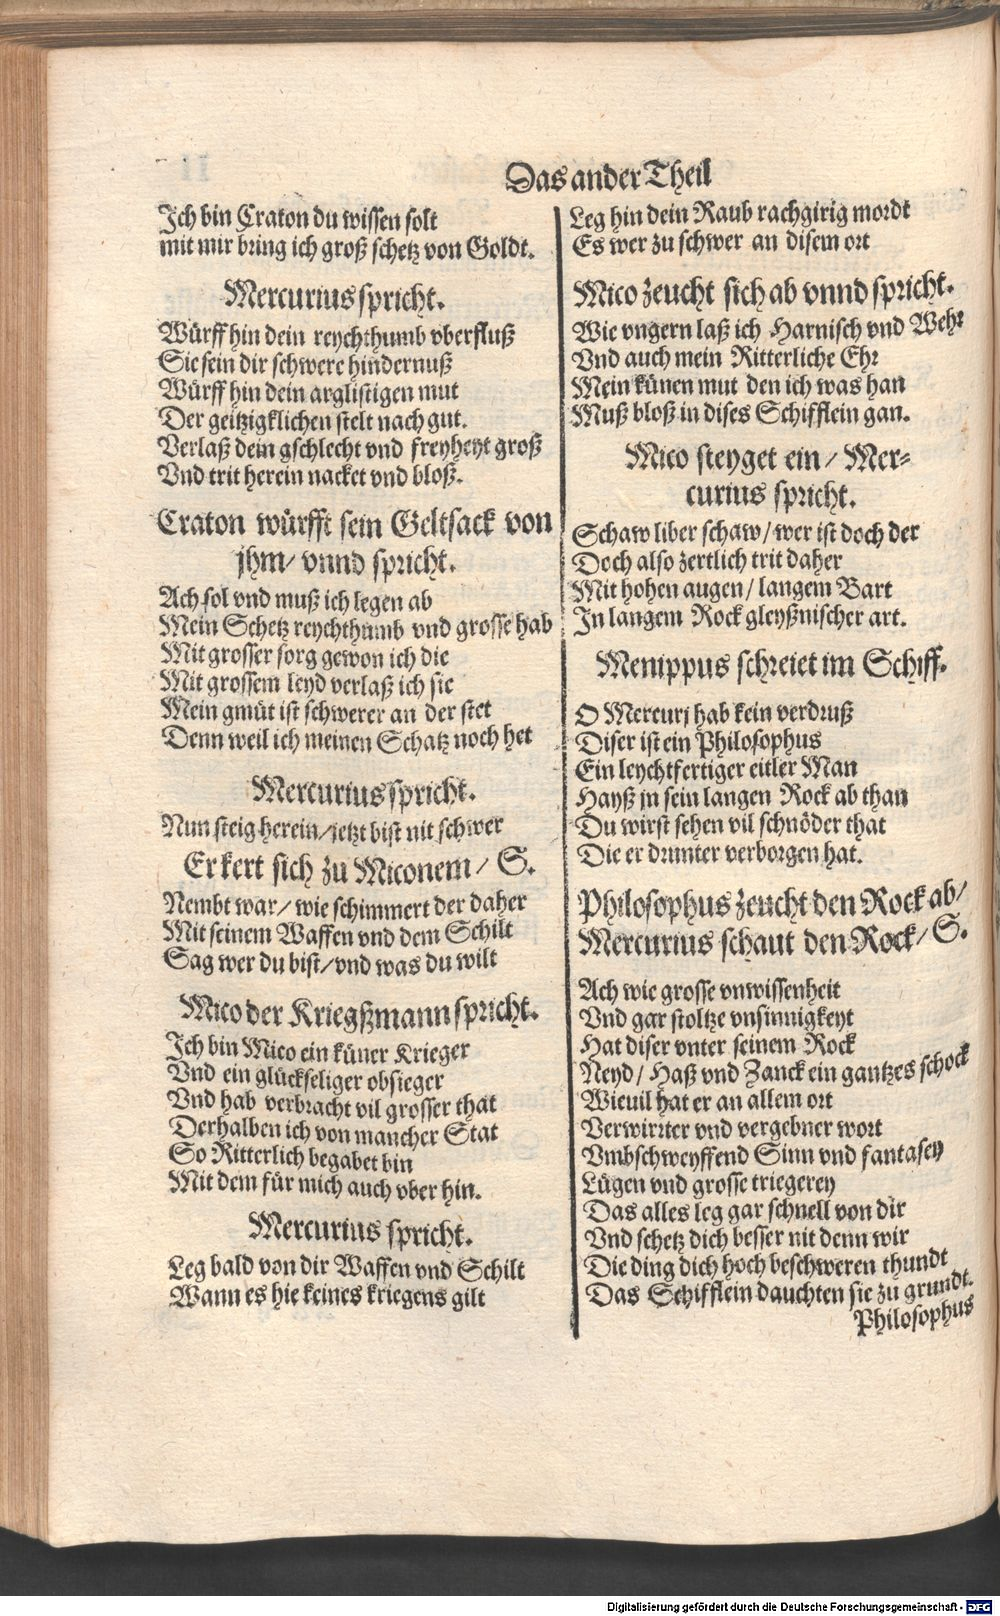 Das ander Theil
Ich bin Craton du wissen solt
mit mir bring ich groß schetz von Goldt.
Mercurius spricht.
Würff hin dein reychthumb vberfluß
Sie sein dir schwere hindernuß
Würff hin dein arglistigen mut
Der geitzigklichen stelt nach gut.
Verlaß dein gschlecht vnd freyheyt groß
Vnd trit herein nacket vnd bloß.
Craton würfft sein Geltsack von
jhm/ vnnd spricht.
Ach sol vnd muß ich legen ab
Mein Schetz reychthumb vnd grosse hab
Mit grosser sorg gewon ich die
Mit grossem leyd verlaß ich sie
Mein gmüt ist schwerer an der stet
Denn weil ich meinen Schatz noch het
Mercurius spricht.
Nun steig herein/ jetzt bist nit schwer
Er kert sich zu Miconem/ S.
Nembt war/ wie schimmert der daher
Mit seinem Waffen vnd dem Schilt
Sag wer du bist/ vnd was du wilt
Mico der Kriegßmann spricht.
Ich bin Mico ein küner Krieger
Vnd ein glückseliger obsieger
Vnd hab verbracht vil grosser that
Derhalben ich von mancher Stat
So Ritterlich begabet bin
Mit dem für mich auch vber hin.
Mercurius spricht.
Leg bald von dir Waffen vnd Schilt
Wann es hie keines kriegens gilt
Leg hin dein Raub rachgirig mordt
Es wer zu schwer an disem ort
Mico zeucht sich ab vnnd spricht.
Wie vngern laß ich Harnisch vnd Wehr
Vnd auch mein Ritterliche Ehr
Mein künen mut den ich was han
Muß bloß in dises Schifflein gan.
Mico steyget ein/ Mer-
curius spricht.
Schaw liber schaw/ wer ist doch der
Doch also zertlich trit daher
Mit hohen augen/ langem Bart
In langem Rock gleyßnischer art.
Menippus schreiet im Schiff.
O Mercurj hab kein verdruß
Diser ist ein Philosophus
Ein leychtfertiger eitler Man
Hayß jn sein langen Rock ab than
Du wirst sehen vil schnöder that
Die er drunter verborgen hat.
Philosophus zeucht den Rock ab/
Mercurius schaut den Rock/ S.
Ach wie grosse vnwissenheit
Vnd gar stoltze vnsinnigkeyt
Hat diser vnter seinem Rock
Neyd/ Haß vnd Zanck ein gantzes schock
Wieuil hat er an allem ort
Verwirrter vnd vergebner wort
Vmbschweyffend Sinn vnd fantasey
Lügen vnd grosse triegerey
Das alles leg gar schnell von dir
Vnd schetz dich besser nit denn wir
Die ding dich hoch beschweren thundt
Das Schifflein dauchten sie zu grundt.
Philosophus
Digitalisierung gefördert durch die Deutsche Forschungsgemeinschaft - DFG